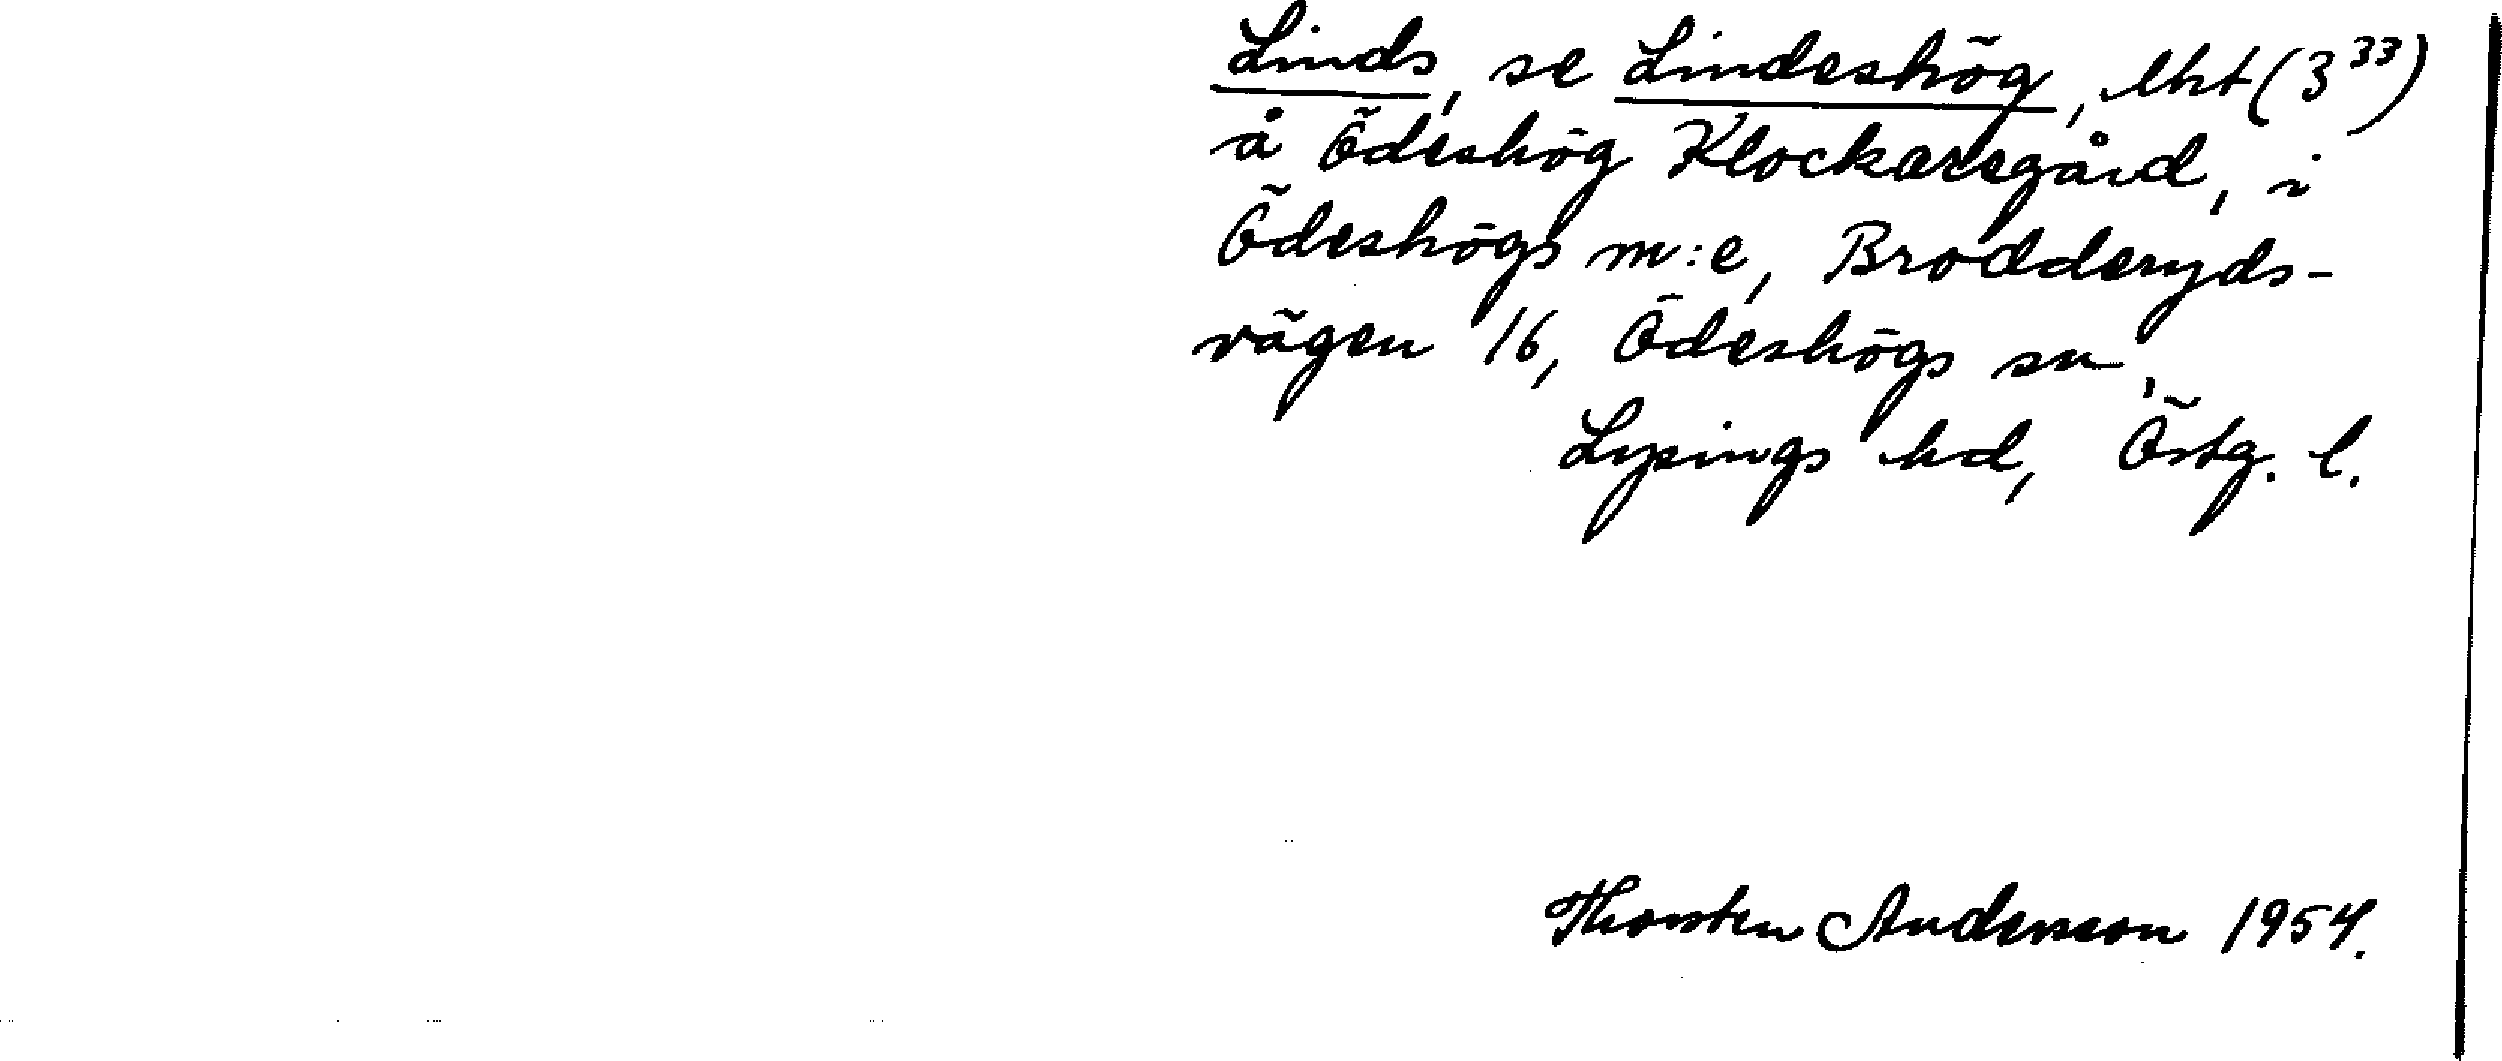 Linds, se Lindeshög, lht (3³³)
å Ödeshög Klockaregård, i
Ödeshögs m:e, Broddery​ds-
vägen 16, Ödeshögs sn,
Lysings hd, Östg. l.
Thorsten Andersson 1954.